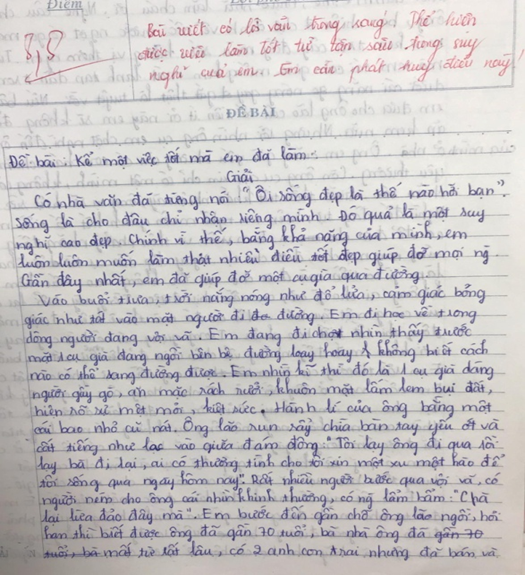 Điểm
8,8
Bài viết có lời văn trong sáng. Thể hiện
được việc làm tốt từ tận sâu trong suy
nghĩ của em. Em cần phát huy điều này!
ĐỀ BÀI
Đề bài: Kể một việc tốt mà em đã làm.
Giải
Có nhà văn đã tiếng nói "Ôi sống đẹp là thế nào hỡi bạn".
Sống là cho đâu chỉ nhận riêng mình. Đó quả là một suy
nghĩ cao đẹp. Chính vì thế, bằng khả năng của mình, em
luôn luôn muốn làm thật nhiều điều tốt đẹp giúp đỡ mọi ng
Gần đây nhất, em đã giúp đỡ một cụ già qua đường.
Vào buổi trưa, trời nắng nóng như đổ lửa, cảm giác bỏng
giác như tát vào mặt người đi đường. Em đi học về trong
dòng người đang vội vã. Em đang đi chợt nhìn thấy trước
mặt 1 cụ già đang ngồi bên bệ đường loay hoay không biết cách
nào có thể sang đường được. Em nhìn kĩ thì đó là 1 cụ già dáng
người gầy gò, ăn mặc rách rưới, khuôn mặt lấm lem bụi đất,
hiện rõ sự mệt mỏi, kiệt sức. Hành lí của ông bằng một
cái bao nhỏ cũ nát. Ông lão run rẩy chìa bàn tay yếu ớt và
cất tiếng như lạc vào giữa đám đông: "Tôi lạy ông đi qua tôi
lạy bà đi lại, ai có thương tình cho tôi xin một xu một hào để
tôi sống qua ngày hôm nay". Rất nhiều người bước qua vội vã, có
người ném cho ông cái nhìn khinh thường, có ng lẩm bẩm: "Chả
lại lừa đảo đây mà". Em bước đến gần chỗ ông lão ngồi, hỏi
han thì biết được ông đã gần 70 tuổi, bà nhà ông đã gần 70
tuổi, bà mất từ rất lâu, có 2 anh con trai nhưng đã bán và